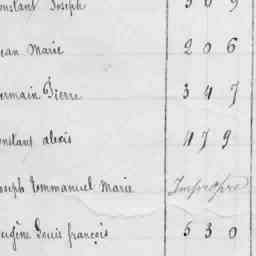 onstant Joseph 3 0 9
ean Marie 2 0 6
ermain Pierre 3 4 7
onstant alexis 4 7 9
oseph Emmanuel Marie Impropre
ugène Louis françois 5 3 0